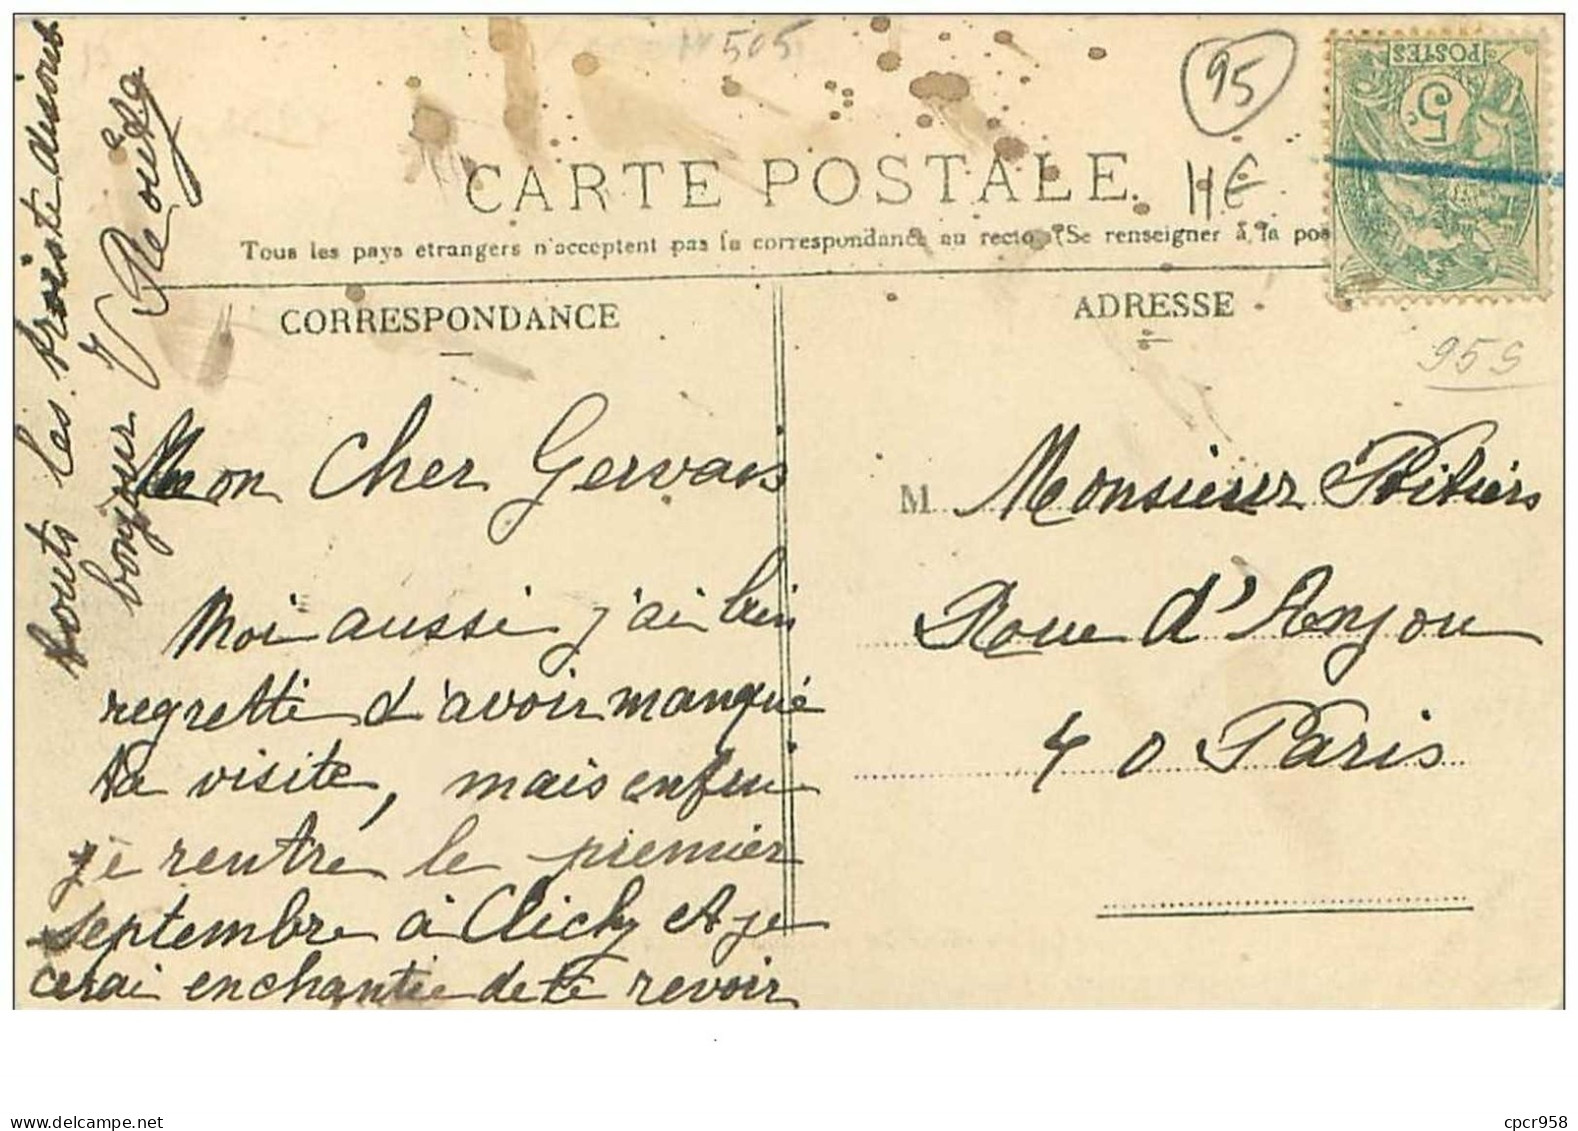 N 505
95
HE
POSTES
5c
CARTE POSTALE
Tous les pays etrangers n'acceptent pas la correspondance au recto (Se renseigner à la pos
CORRESPONDANCE
ADRESSE
95 S
Mon Cher Gervais
Moi aussi j'ai bien
regretté d'avoir manqué
ta visite, mais enfin
je rentre le premier
septembre à Clichy et je
cerai enchantée de te revoir
touts les trois te disons
bonjour
M Monsieur Poitiers
Roue d'Anjou
40 Paris
www.delcampe.net
cpcr958